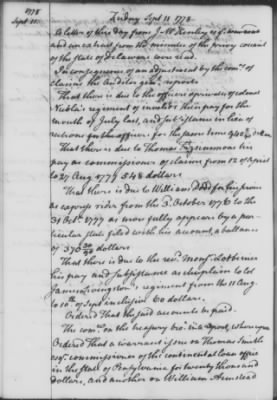 1778
Sept. 11.
Friday Sept. 11 1778.
A letter of this day from J. M.
and one extract from the minutes of the privy council
of the state of delaware were read.
In consequence of an adjustment by the com.rs of
claims the Auditor gen.l reports
That there is due to the officers & privates of colonel
regiment of invalids their pay for the
month of July last, and subsistence in lieu of
rations for the officers for the same time
That there is due to Thomas Fitzsimmons his
pay as commissioner of claims from 12 of April
to 27 Aug 1778 548 dollars
That there is due to William Dodd for his pay
as express rider from the 3. October 1776 to the
31 Oct.r 1777 as more fully appears by a par-
ticular state filed with his account, a ballance
of 570 30/90 dollars
That there is due to the rev.d Mons.r Lotbiniere
his pay and subsistence as chaplain to col
James Livingston's regiment from the 11 Aug.
to 10th of Sept. inclusive 60 dollars.
Ordered That the said accounts be paid.
The com.ee on the treasury bro.t in a report, whereupon
Ordered That a warrant issue on Thomas Smith
esq.r commissioner of the continental loan office
in the state of Pensylvania for twenty thousand
dollars, and another on William Armstead